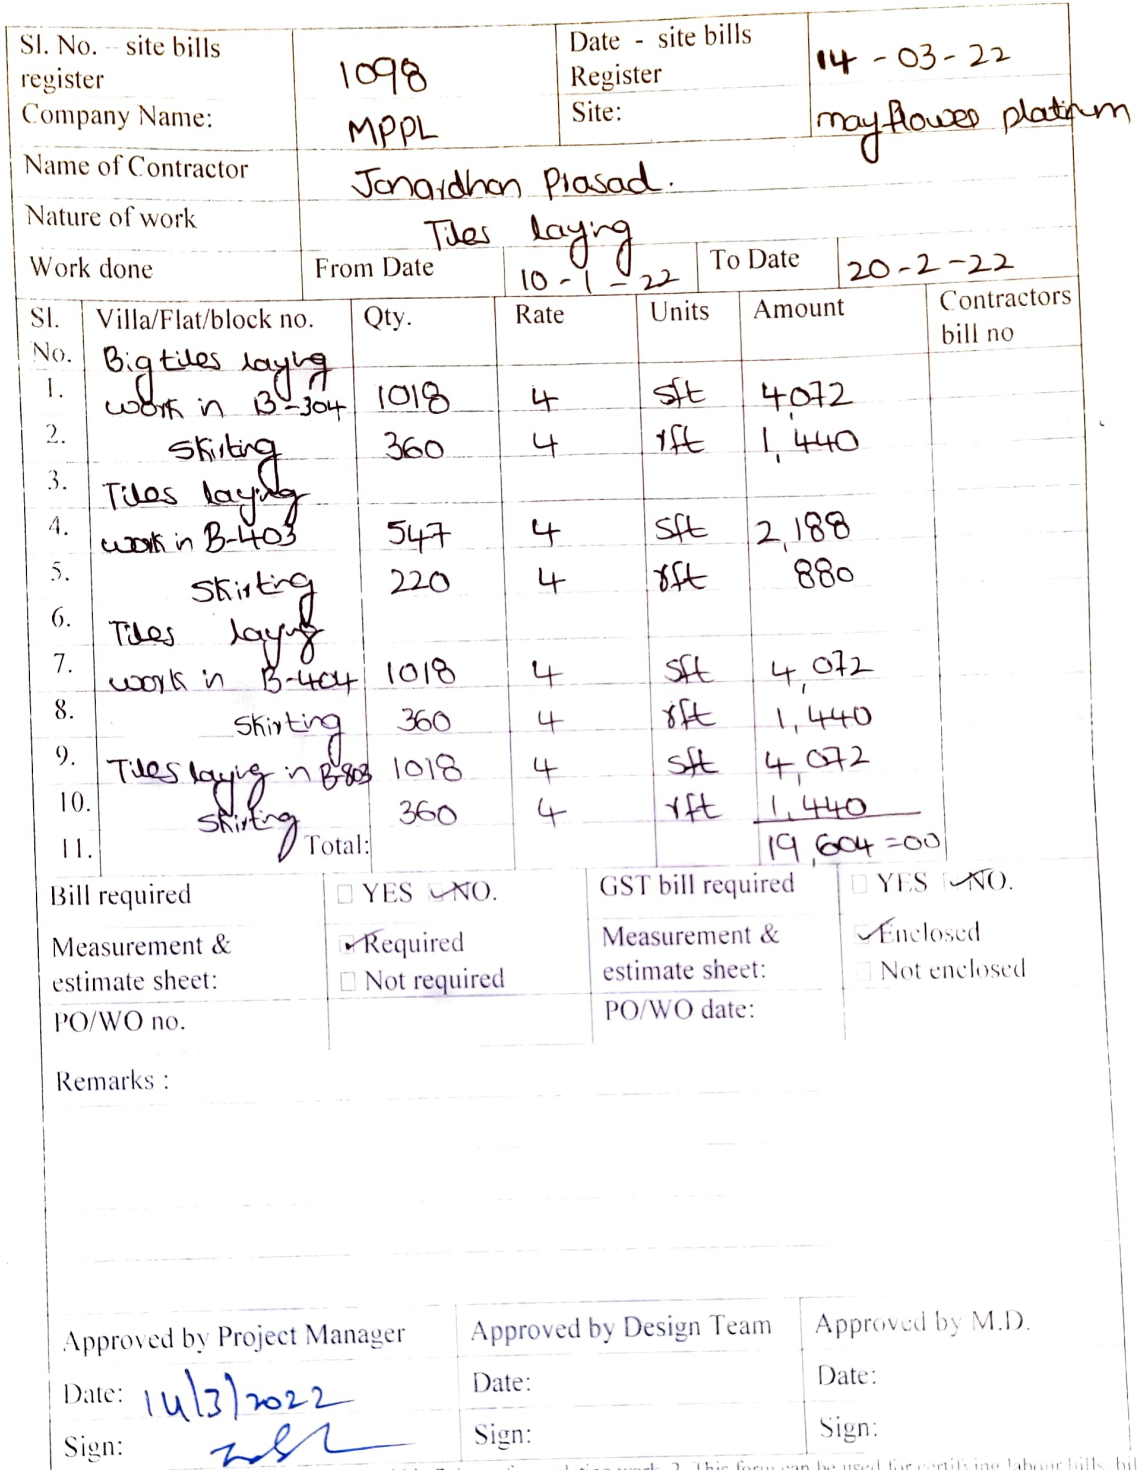 Sl. No. - site bills register 1098 Date - site bills Register 14-03-22
Company Name: MPPL Site: mayflower platinum
Name of Contractor Janardhan Prasad.
Nature of work Tiles laying
Work done From Date 10-1-22 To Date 20-2-22
Sl. No. Villa/Flat/block no. Qty. Rate Units Amount Contractors bill no
Big tiles laying
1. work in B-304 1018 4 sft 4,072
2. Skirting 360 4 rft 1,440
3. Tiles laying
4. work in B-403 547 4 sft 2,188
5. Skirting 220 4 rft 880
6. Tiles laying
7. work in B-404 1018 4 sft 4,072
8. Skirting 360 4 rft 1,440
9. Tiles laying in B-803 1018 4 sft 4,072
10. Skirting 360 4 rft 1,440
11. Total: 19,604=00
Bill required YES NO. GST bill required YES NO.
Measurement & estimate sheet: Required Measurement & estimate sheet: Enclosed
Not required Not enclosed
PO/WO no. PO/WO date:
Remarks :
Approved by Project Manager Approved by Design Team Approved by M.D.
Date: 14/3/2022 Date: Date:
Sign: Sign: Sign:
This form can be used for certifying labour bills,